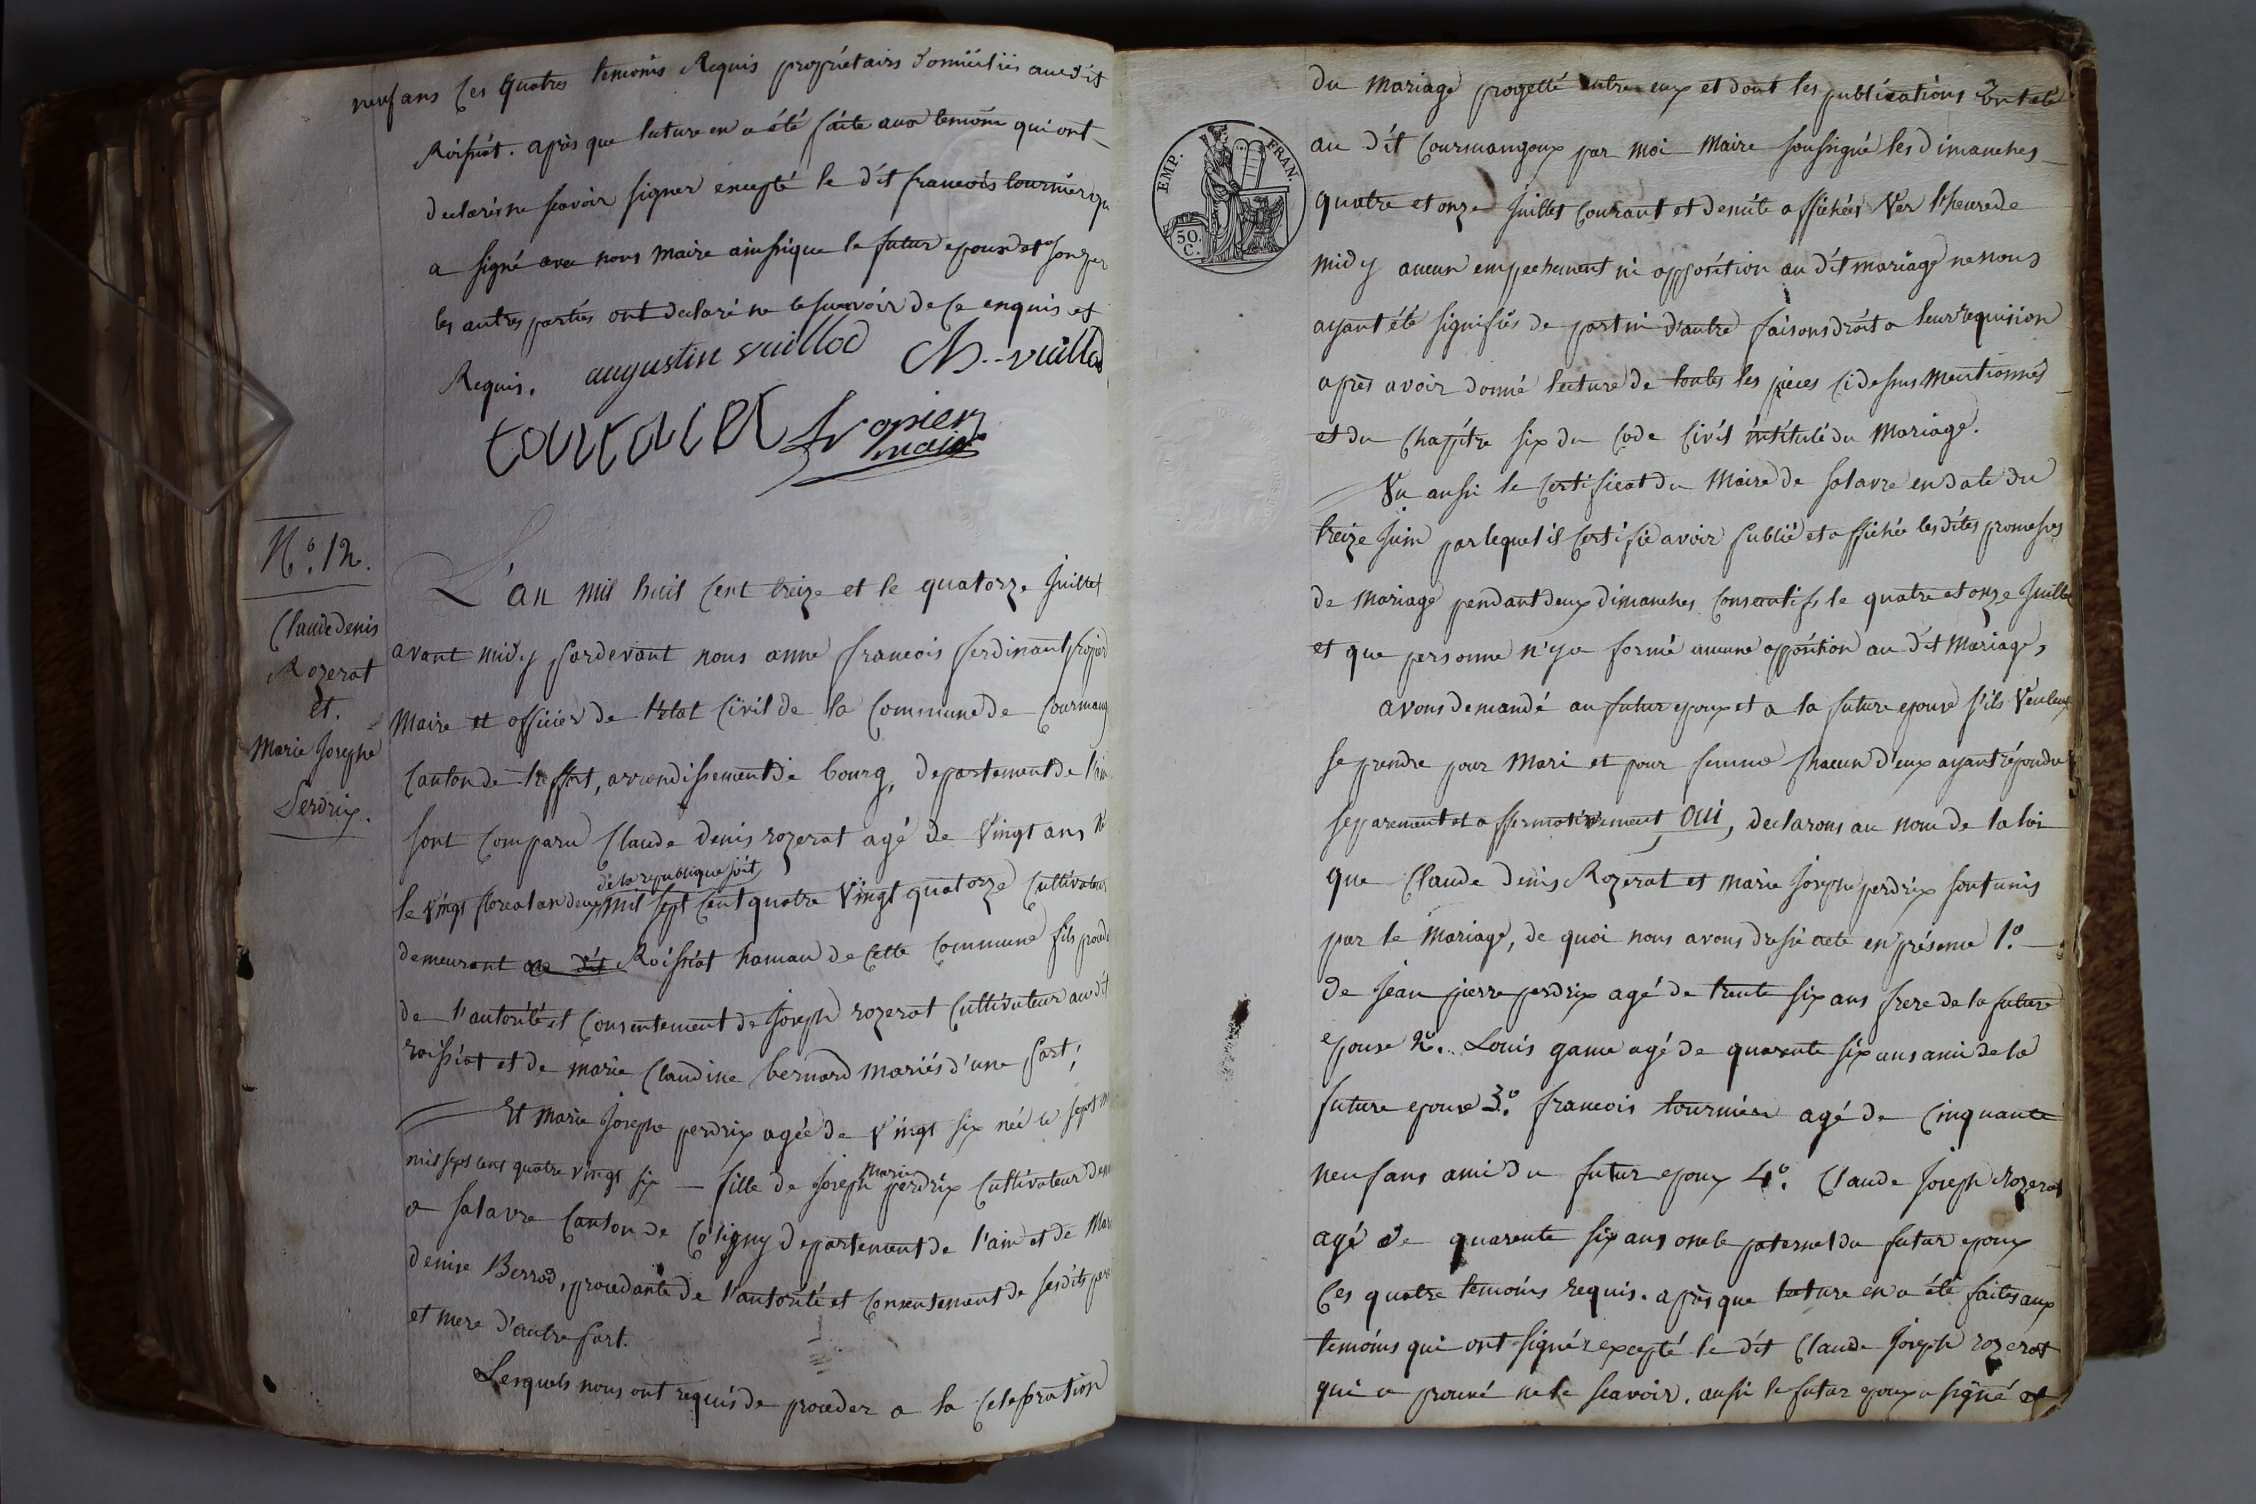 neuf ans Ces quatres temoins Requis propriétairs domiciliés audit
Roissiat. après que lecture en a été faite aux temoins qui ont
declarés ne scavoir signer excepté le dit francois tournier qu
a signé avec nous maire ainsique le futur epoux et son per
les autres parties ont declaré ne le scavoir de Ce enquis et
Requis. augustin vuillod Ch. vuillod
tournier fropier
maire
N.o 12.
Claude denis
Rozerat
et.
Marie Josephe
Perdrix.
L'an mil huit Cent treize et le quatorze Juillet
avant midy pardevant nous anne francois ferdinant
Maire et officier de l'état Civil de la Commune de Courmang
Canton de treffort, arrondissement de bourg, departement de l'ain
sont Comparu Claude denis rozerat agé de vingt ans né
de la republique soit
le vingt floreal an deux mil sept Cent quatre vingt quatorze Cultivateur
demeurant au dit Roissiat hamau de Cette Commune fils
de l'autorité et Consentement de Joseph rozerat Cultivateur audit
roissiat et de marie Claudine bernard mariés d'une part;
Et marie Josephe perdrix agée de vingt six née le sept
mil sept cent quatre vingt six — fille de Joseph Marie perdrix Cultivateur dem
a salavre Canton de Coligny departement de l'ain et de Mar
denise Berrod, procedante de l'autorité et Consentement de ses dits pere
et mere d'autre part.
Lesquels nous ont requis de proceder a la Celebration
du Mariage projetté entre eux et dont les publications ont été
EMP. FRAN.
50.
C.
au dit Courmangoux par moi Maire soussigné les dimanches
quatre et onze Juillet Courant et denuite affichées Ver l'heure de
midy aucun empechement ni opposition au dit mariage ne nous
ayant été signifiés de part ni d'autre faisons droit a leur requision
après avoir donné lecture de toutes les pieces Ci dessus Mentionnés
et du Chapitre six du Code Civil intitulé du Mariage.
Vu aussi le Certificat du Maire de salavre en date du
treize Juin par lequel il Certifie avoir publié et affichée les dites promesses
de mariage pendant deux dimanches Consecutifs le quatre et onze Juillet
et que personne n'y a formé aucune opposition au dit Mariage,
avons demandé au futur epoux et a la future epouse s'ils veulent
se prendre pour Mari et pour femme Chacun d'eux ayant répondu
separement et affirmativement OUI, declarons au nom de la loi
que Claude denis Rozerat et marie Josephe perdrix sont unis
par le Mariage, de quoi nous avons dressé acte en présence 1.o
de Jean pierre perdrix agé de trente six ans frere de la future
epouse 2.o Louis game agé de quarente six ans ami de la
future epouse 3.o francois tournier agé de Cinquante
neuf ans ami du futur epoux 4.o Claude Joseph rozerat
agé de quarente six ans oncle paternel du futur epoux
Ces quatre temoins requis. après que lecture en a été faites aux
temoins qui ont signér excepté le dit Claude Joseph rozerat
qui a prouvé ne le scavoir. aussi le futur epoux a signé et